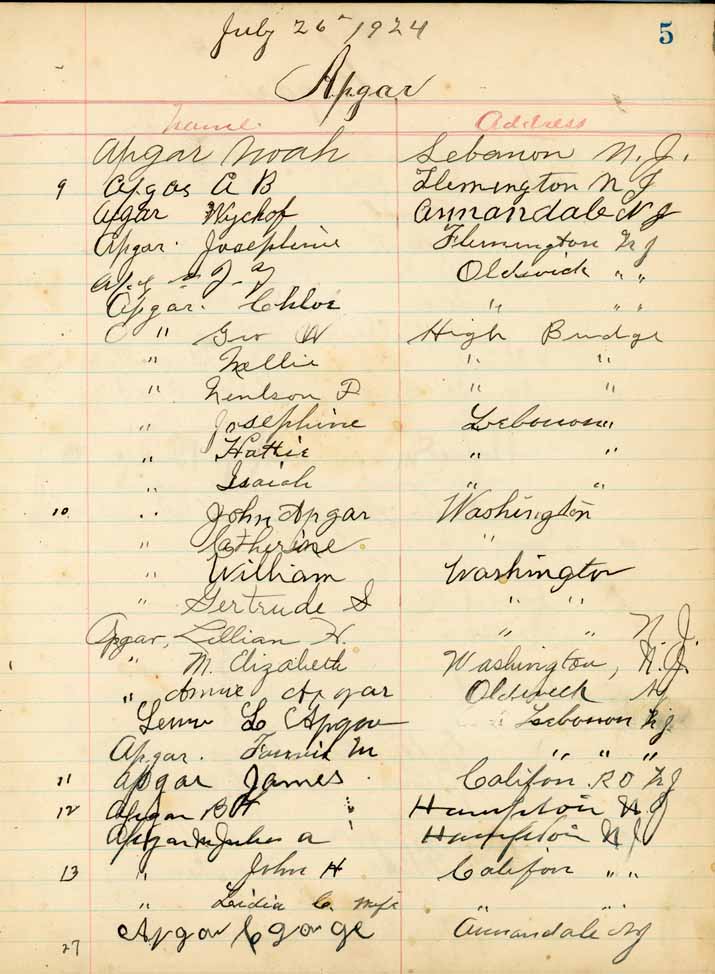 July 26 1924 5
Apgar
Name. Address
Apgar Noah Lebanon N.J.
9 Apgar A B Flemington N J
Apgar Wyckof Annandale N J
Apgar. Josephine Flemington N J
J. Oldwick " "
Apgar. Chloe " " "
" Geo W High Bridge
" Nellie " "
" F " "
" Josephine Lebanon "
" Hattie " "
" Isaiah " "
10 " John Apgar Washington
" Catherine "
" William Washington
" Gertrude S " "
Apgar, Lillian H. " " N. J.
" M. Elizabeth Washington, N.J.
" Annie Apgar Oldwick NJ
L Apgar Lebanon N J
Apgar. Fannie M " " "
11 Apgar James. Califon. R D N J
12 Apgar B F Hampton N. J
Apgar Julia a Hampton N J
13 " John H Califon " "
" Lidia C. wife " "
27 Apgar George Annandale NJ